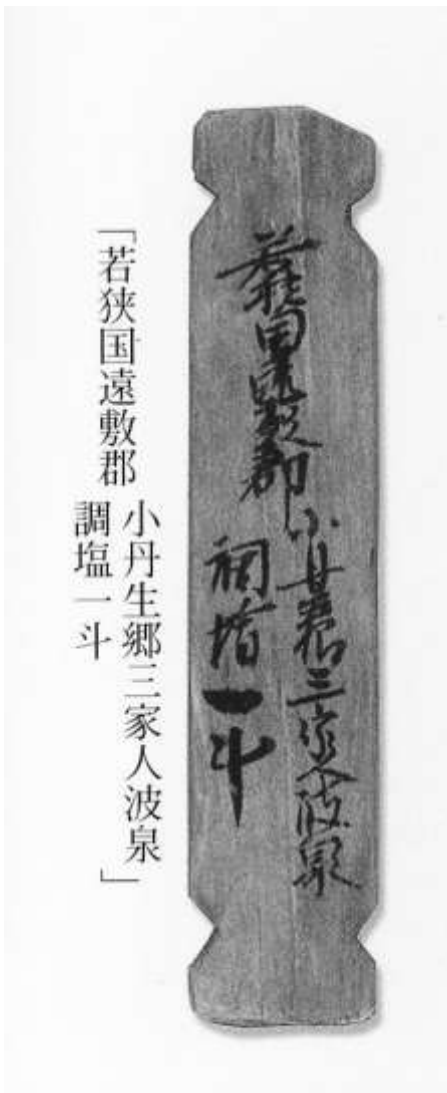 若狭国遠敷郡
小丹生郷三家人波泉
調塩一斗
「若狭国遠敷郡
小丹生郷三家人波泉
調塩一斗」